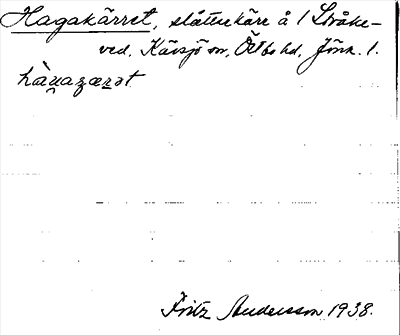 Hagakärret, slåttekärr å 1 Stråke-
ved, Kävsjö sn, Östbo hd, Jönk. l.
hàgaʒærət
Fritz Andersson 1938.